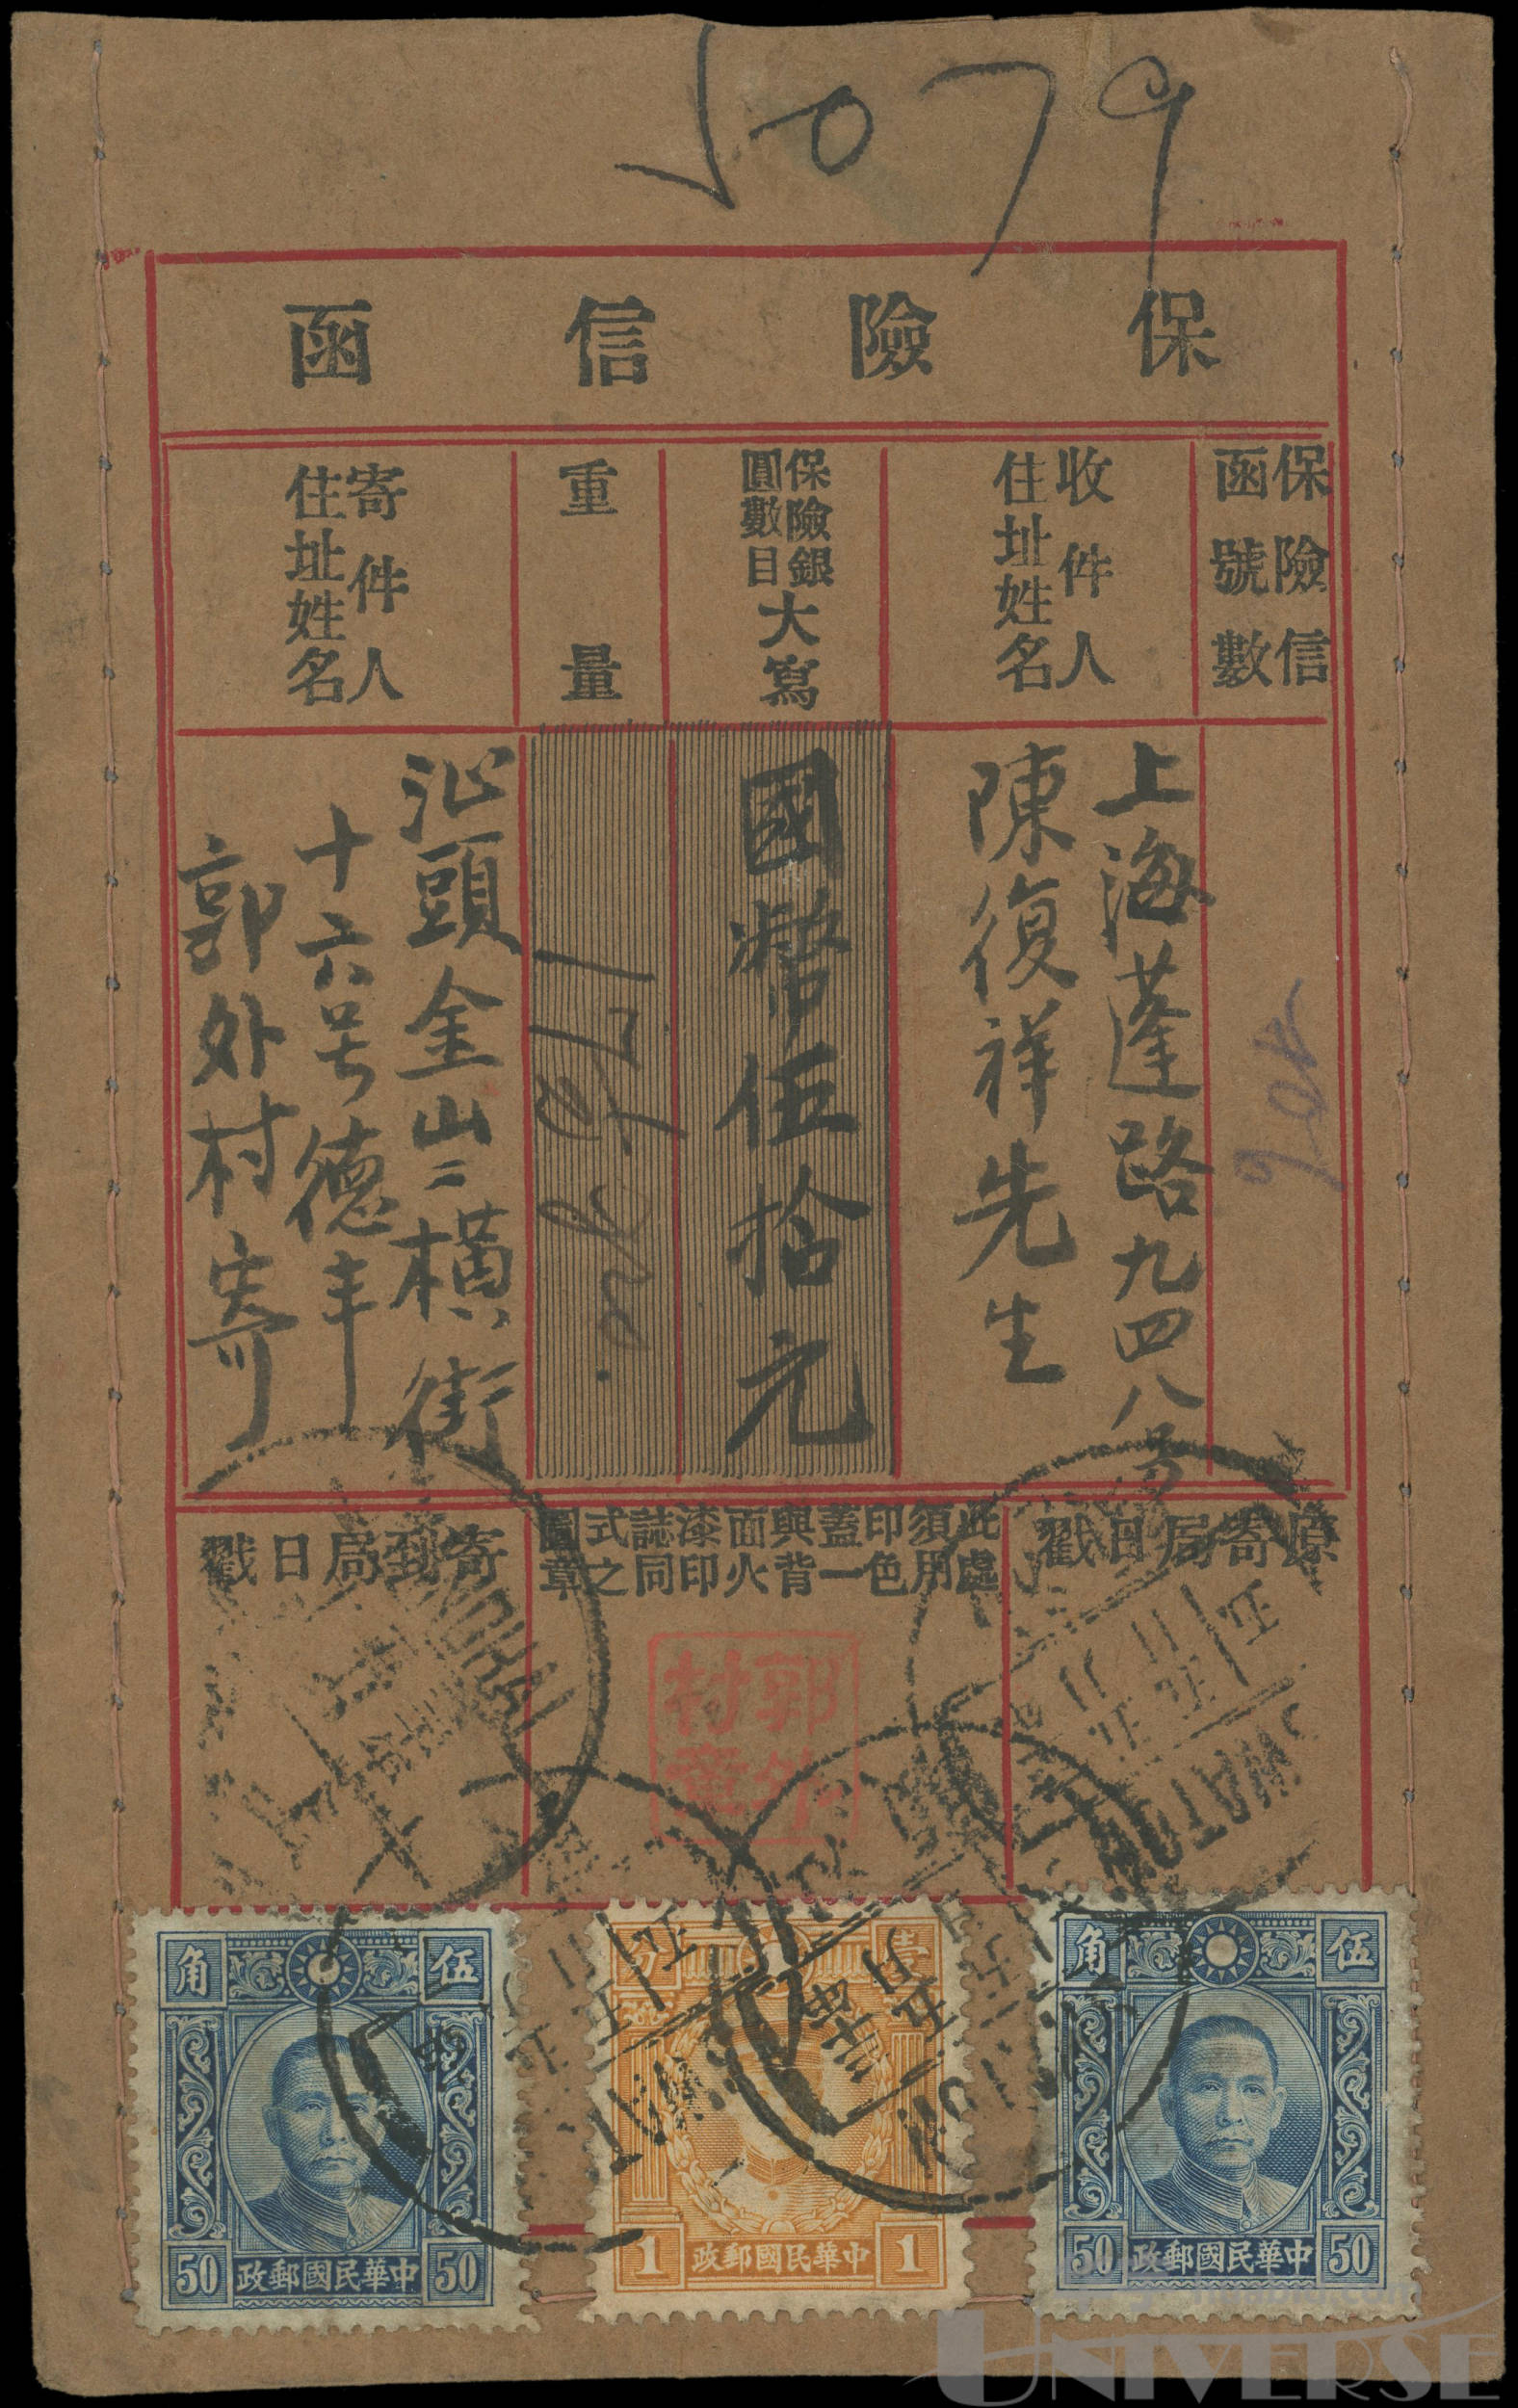 5079
保險信函
保險信
函號數
收件人
住址姓名
保險銀
圓數目
大寫
重量
寄件人
住址姓名
上海蓬路九四八号
陳復祥先生
國幣伍拾元
汕頭金山二橫街
十六号德丰
郭外村寄
原寄局日戳
此處須用印色蓋一與背面火漆印誌同式之圖章
寄到局日戳
郭外
村章
SWATOW
伍 角
50 中華民國郵政 50
壹 分
1 中華民國郵政 1
伍 角
50 中華民國郵政 50
UNIVERSE